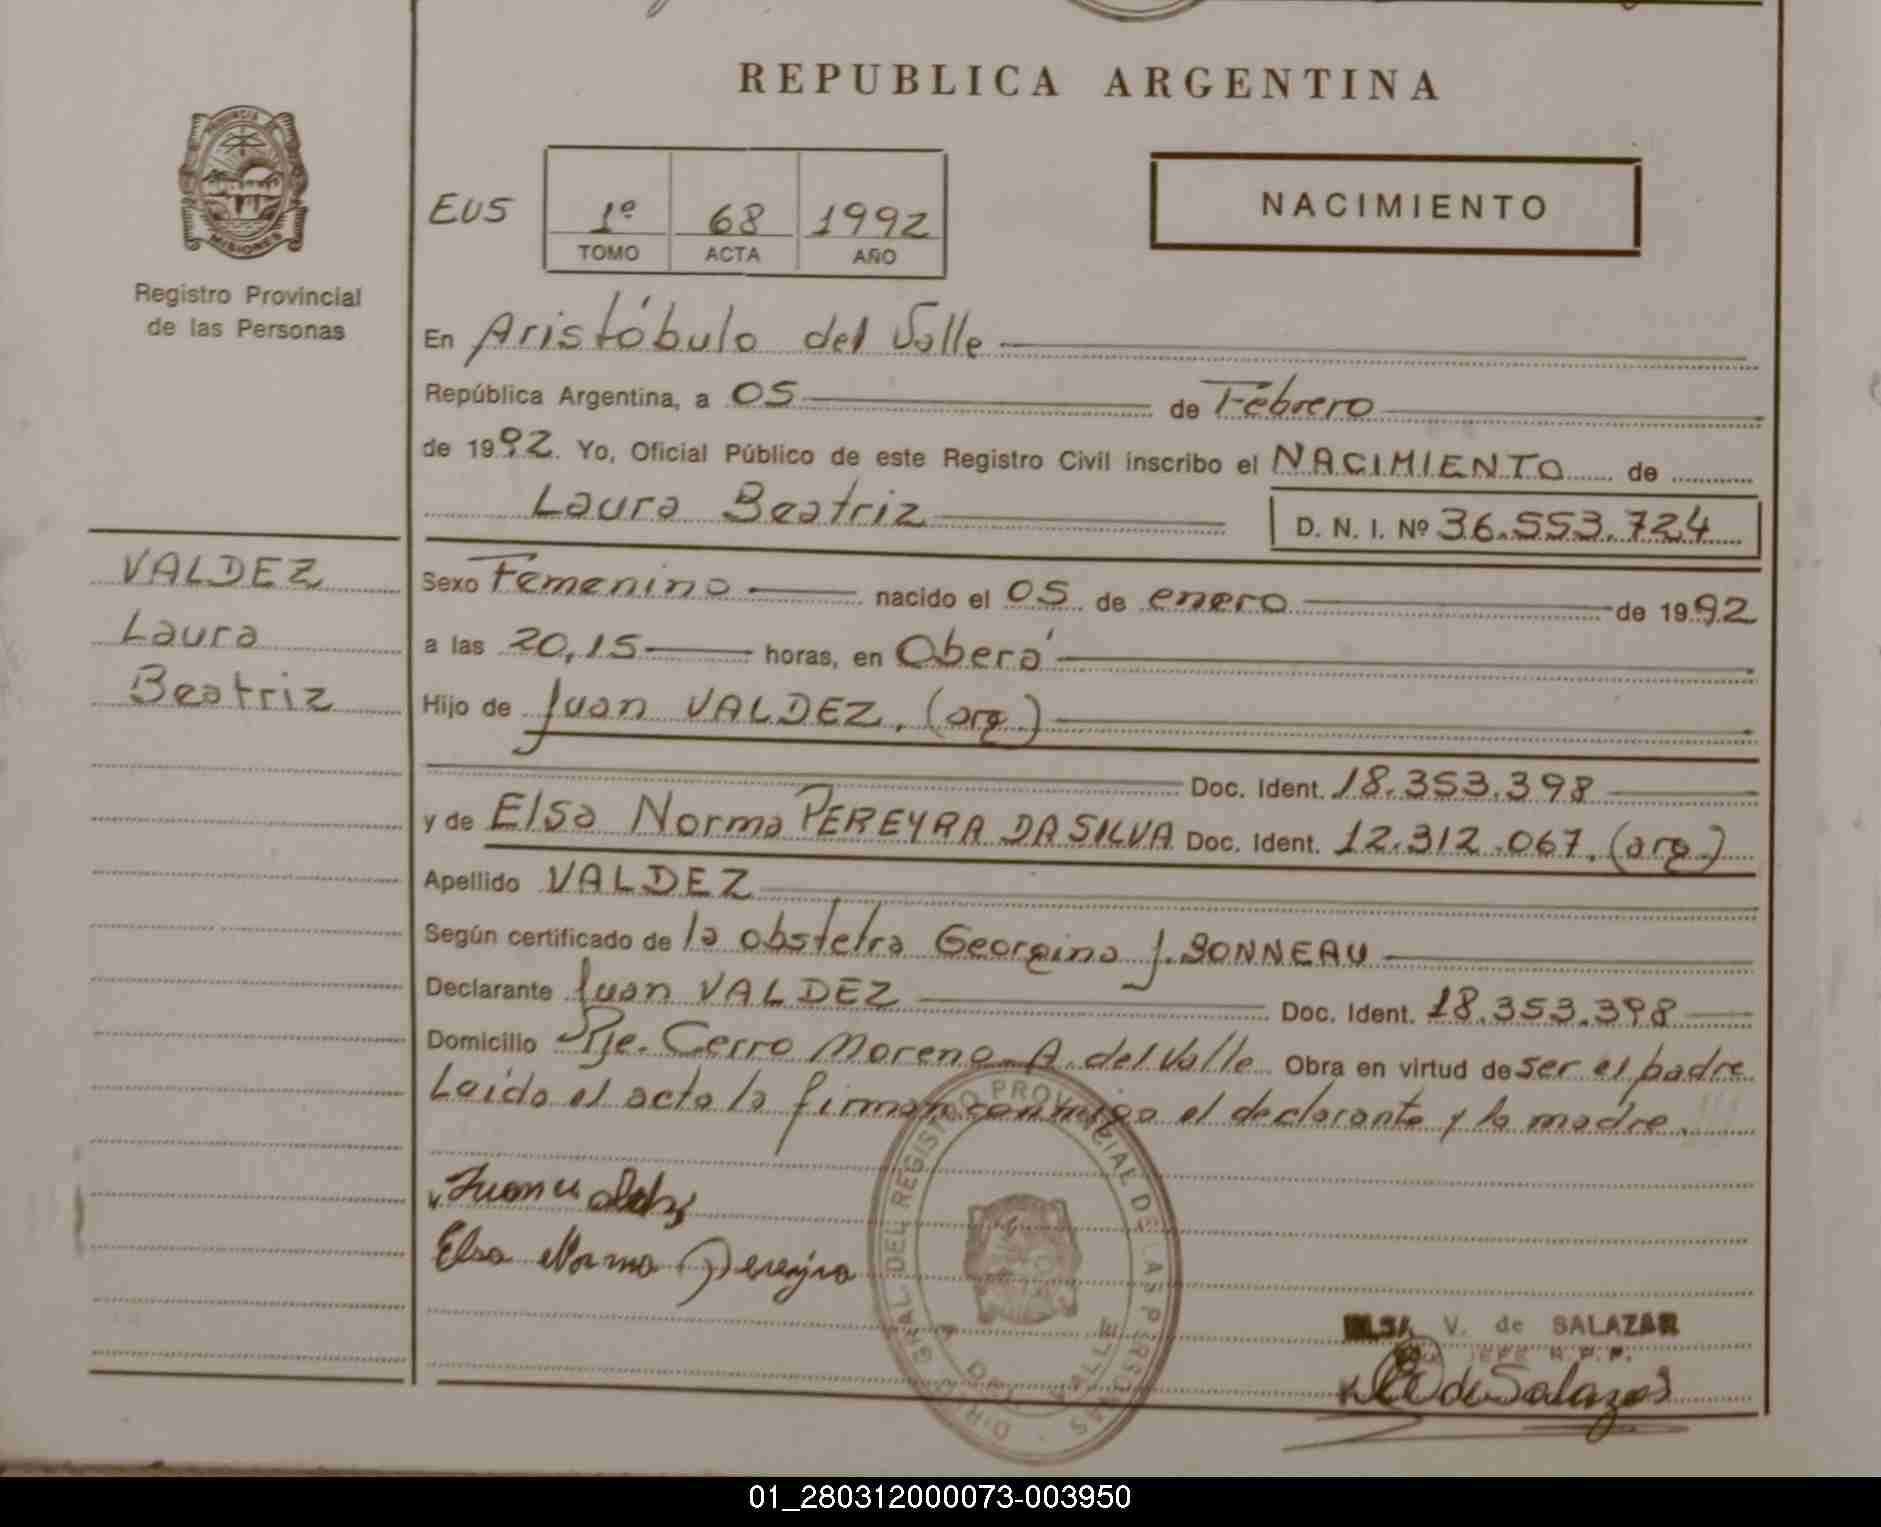 REPUBLICA ARGENTINA
PROVINCIA DE MISIONES
Registro Provincial
de las Personas
EUS
1º 68 1992
TOMO ACTA AÑO
NACIMIENTO
En Aristóbulo del Valle
República Argentina, a 05 de Febrero
de 1992. Yo, Oficial Público de este Registro Civil inscribo el NACIMIENTO de
Laura Beatriz D. N. I. Nº 36.553.724
VALDEZ
Laura
Beatriz
Sexo Femenino nacido el 05 de enero de 1992
a las 20,15 horas, en Oberá
Hijo de Juan VALDEZ. (arg.)
Doc. Ident. 18.353.398
y de Elsa Norma PEREYRA DA SILVA Doc. Ident. 12.312.067. (arg.)
Apellido VALDEZ
Según certificado de la obstetra Georgina J. BONNEAU
Declarante Juan VALDEZ Doc. Ident. 18.353.398
Domicilio Pje. Cerro Moreno A. del Valle Obra en virtud de ser el padre
Laido el acta la firman conmigo el declarante y la madre.
Elsa Norma Pereyra
DIREC. GRAL. DEL REGISTRO PROVINCIAL DE LAS PERSONAS
A. DEL VALLE
ELSA V. de SALAZAR
JEFE R.P.P.
de Salazar
01_280312000073-003950